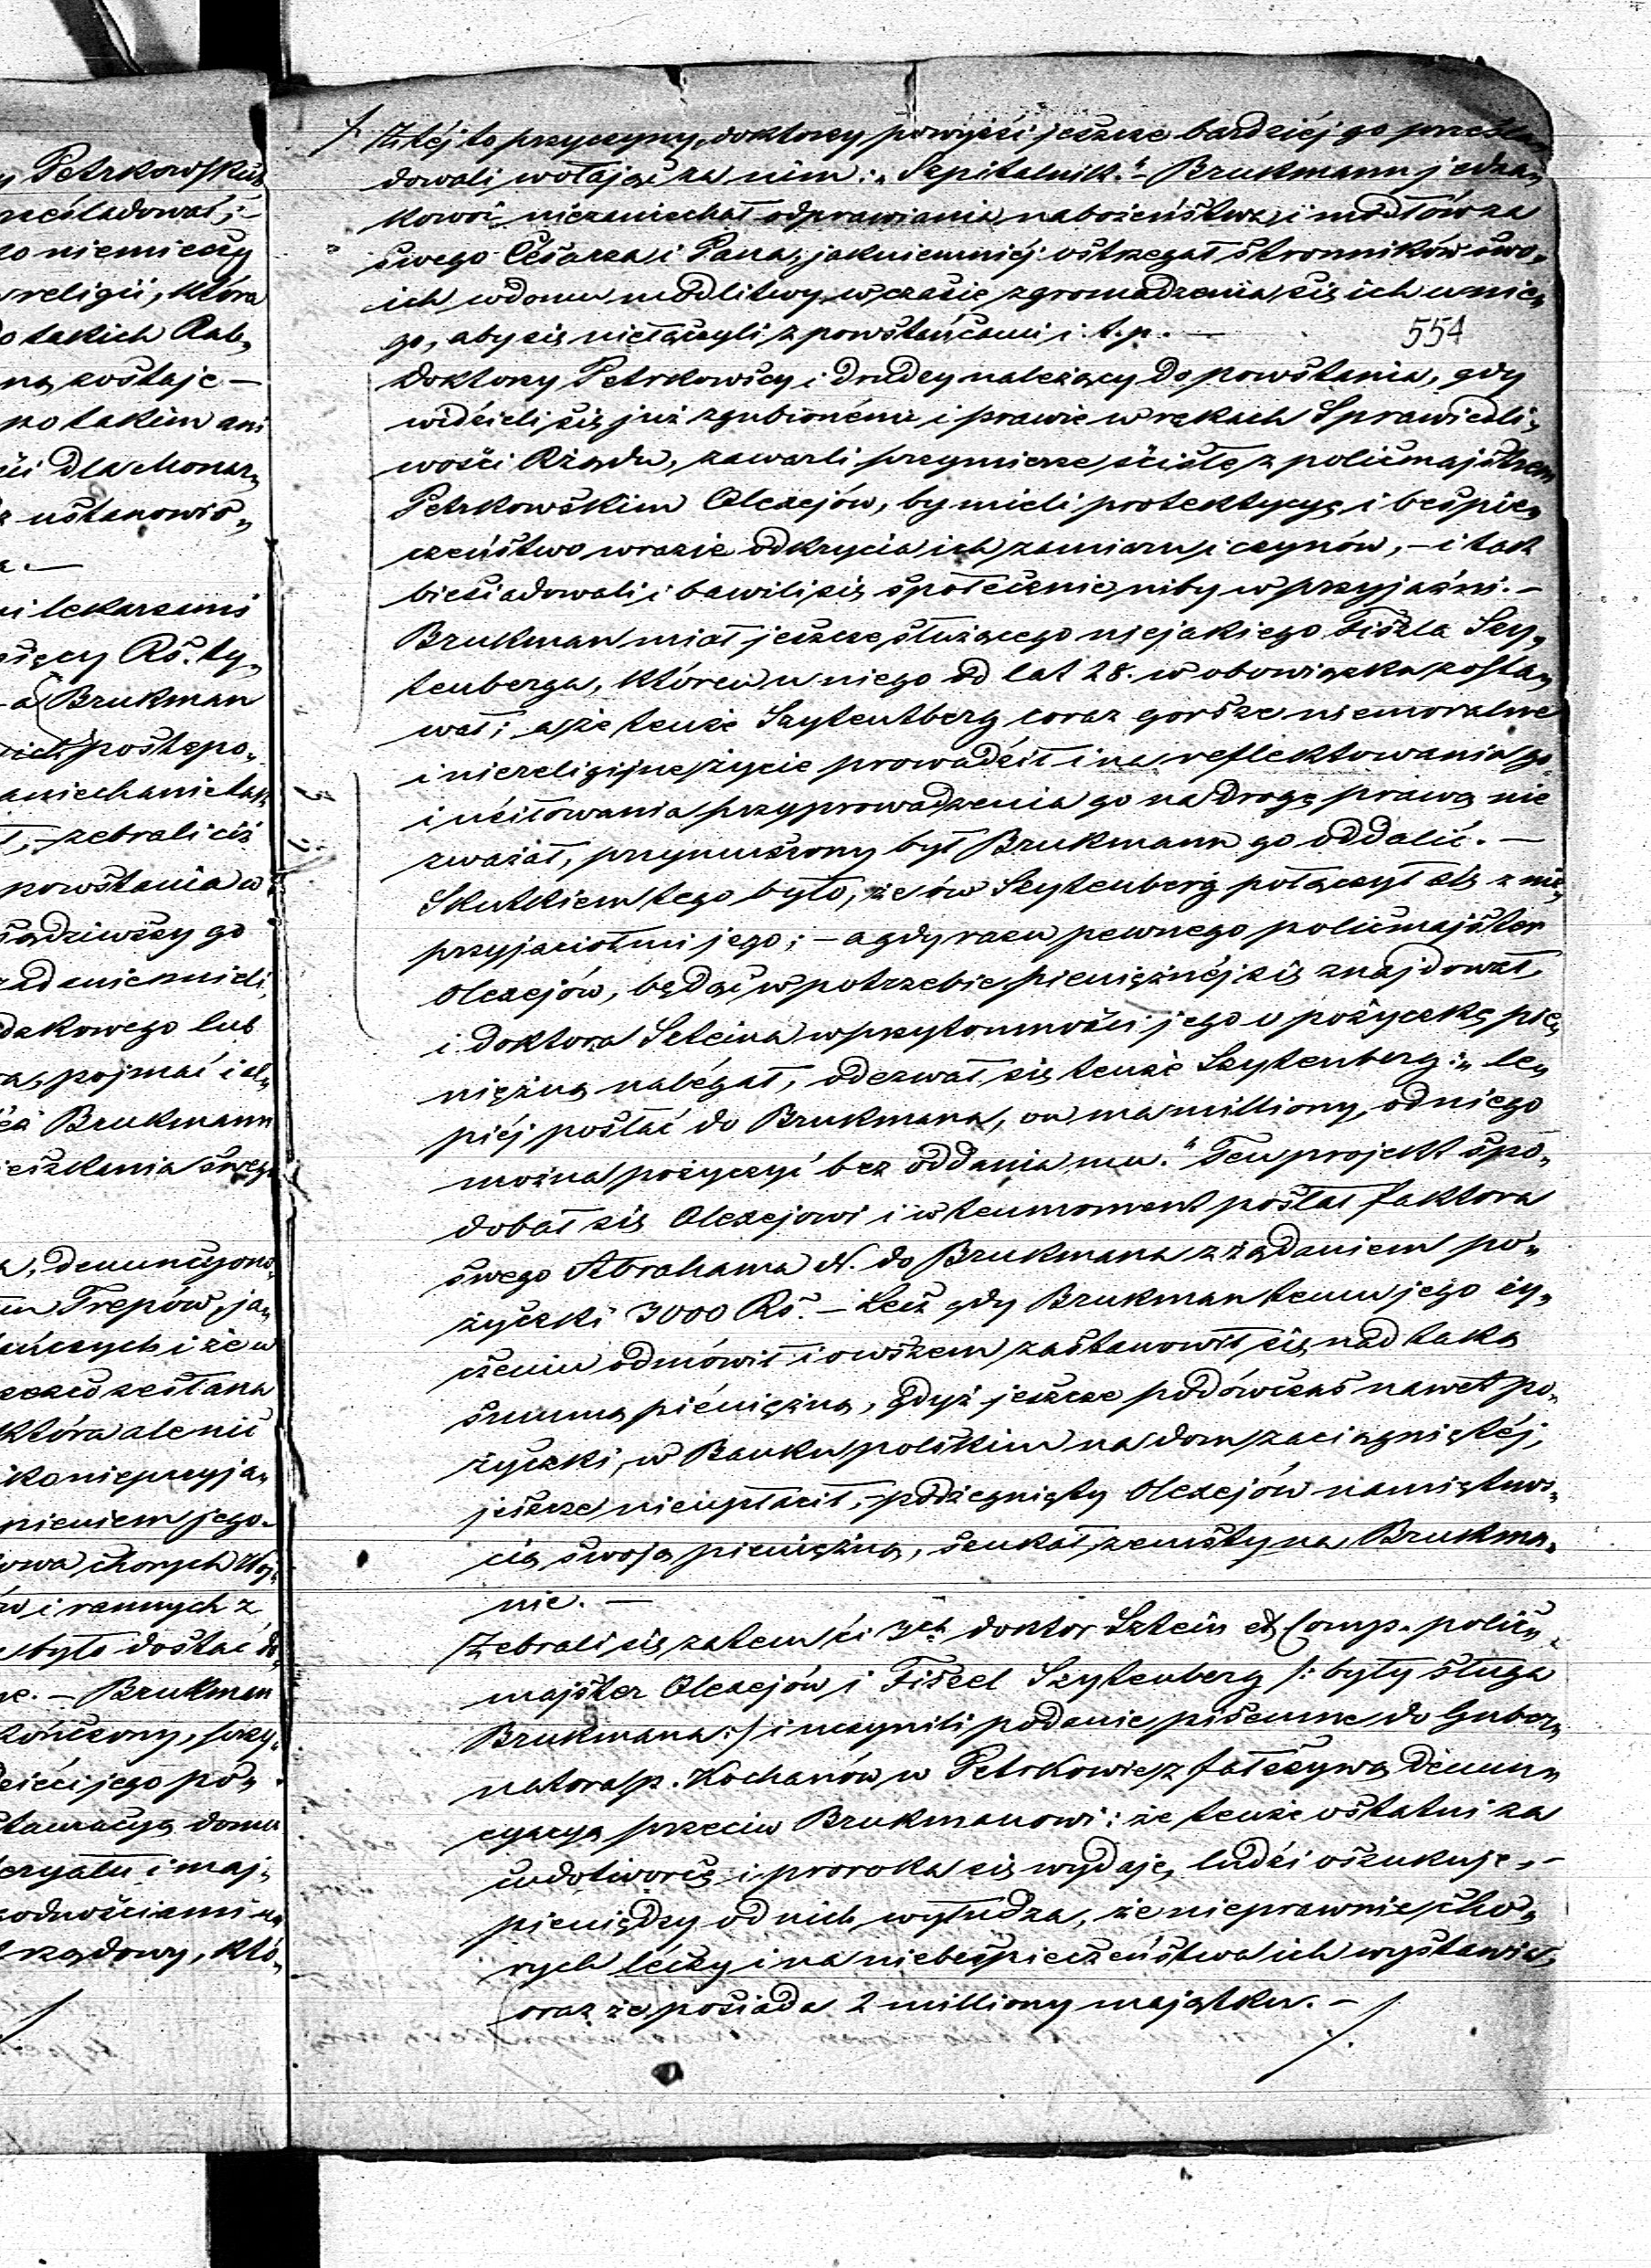 Z téj to przyczyny, doktorzy powyżsi jeszcze bardziéj go prześla„
dowali wołając za nim: „Szpitalnik." – Brukmann jedna„
kowoż niezaniechał odprawiania nabożeństwa i modłów za
swego Césarza i Pana, jakniemniéj ostrzegał stronników swo„
ich w domu modlitwy w czasie zgromadzenia się ich w nie„
go, aby się niełączyli z powstańcami i t. p. —
554
Doktorzy Petrkowscy i drudzy należący do powstania, gdy
widzieli się już zgubionémi i prawie w rękach Sprawiedli„
wości Rządu, zawarli przymierze ścisłe z policmajstrem
Petrkowskim Olexejów, by mieli protekcyę i bespie„
czeństwo w razie odkrycia ich zamiaru i czynów, – i tak
biesiadowali i bawili się społecznie niby w przyjaźni. –
Brukman miał jeszcze służącego niejakiego Fiszla Szy„
tenberga, któren u niego od lat 28. w obowiązku zosta„
wał; a że tenże Szytentberg coraz gorsze niemoralne
i niereligijne życie prowadził i na reflektowania go
i usiłowania przyprowadzenia go na drogę prawą nie
zważał, przymuszony był Brukmann go oddalić. —
Skutkiem tego było, że ów Szytenberg połączył się z nie„
przyjaciołmi jego; – a gdy razu pewnego policmajster
Olexejów, będąc w potrzebie pieniężnéj się znajdował,
i doktora Szteina w przytomności jego o pożyczkę pie„
niężną nalégał, odezwał się tenże Szytenberg: „le„
piéj posłać do Brukmana, on ma milliony, od niego
można pożyczyć bez oddania mu." Ten projekt spo„
dobał się Olexejowi i w ten moment posłał faktora
swego Abrahama N. do Brukmana z żądaniem po„
życzki 3000 Rs. – Lecz gdy Brukman temu jego ży„
czeniu odmówił i owszem zastanowił się nad taką
summą pieniężną, gdyż jeszcze podówczas nawet po„
życzki, w Banku polskim na dom zaciągniętéj,
jeszcze nieupłacił, – podżegnięty Olexejów namiętno„
cią swoją pieniężną, szukał zemsty na Brukma„
nie. —
Zebrali się zatem ci 3ch doktor Sztein et Comp. polic„
majster Olexejów i Fiszel Szytenberg /: były sługa
Brukmana :/ i uczynili podanie pisemne do Guber„
natora p. Kochanów w Petrkowie z fałszywą denun„
cyacyą przeciw Brukmanowi: że tenże ostatni za
cudotworcę i proroka się wydaje, ludzi oszukuje, –
pieniędzy od nich wyłudza, że nieprawnie cho„
rych léczy i na niebespieczeństwa ich wystawia,
oraz że posiada 2 milliony majątku. –